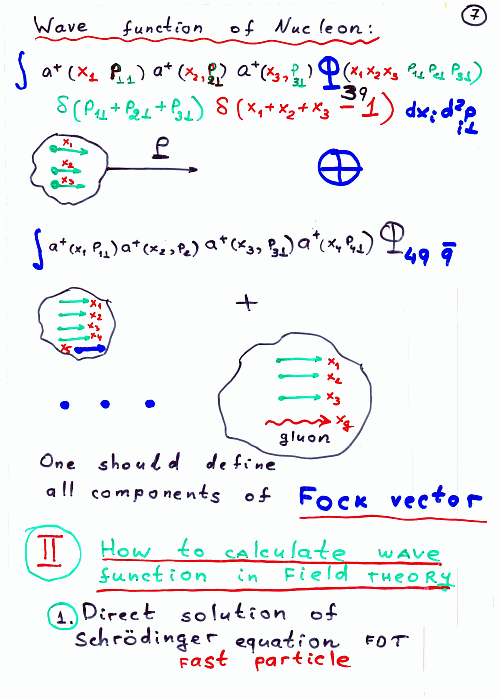 7
Wave function of Nucleon:
∫ a⁺(x₁ P₁⊥) a⁺(x₂, P₂⊥) a⁺(x₃, P₃⊥) Φ₃q (x₁ x₂ x₃ P₁⊥ P₂⊥ P₃⊥)
δ(P₁⊥ + P₂⊥ + P₃⊥) δ(x₁ + x₂ + x₃ − 1) dxᵢ d²pᵢ⊥
x₁
x₂
x₃
P
⊕
∫ a⁺(x₁ P₁⊥) a⁺(x₂, P₂) a⁺(x₃, P₃⊥) a⁺(x₄ P₄⊥) Φ₄q q̄
x₁
x₂
x₃
x₄
x₅
+
x₁
x₂
x₃
xg
gluon
• • •
One should define
all components of Fock vector
II How to calculate wave
function in Field Theory
1. Direct solution of
Schrödinger equation for
Fast particle